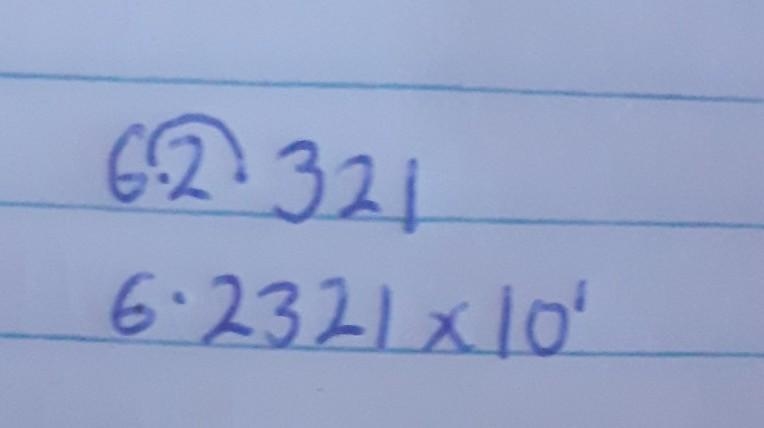 62.321
6.2321 x 10¹